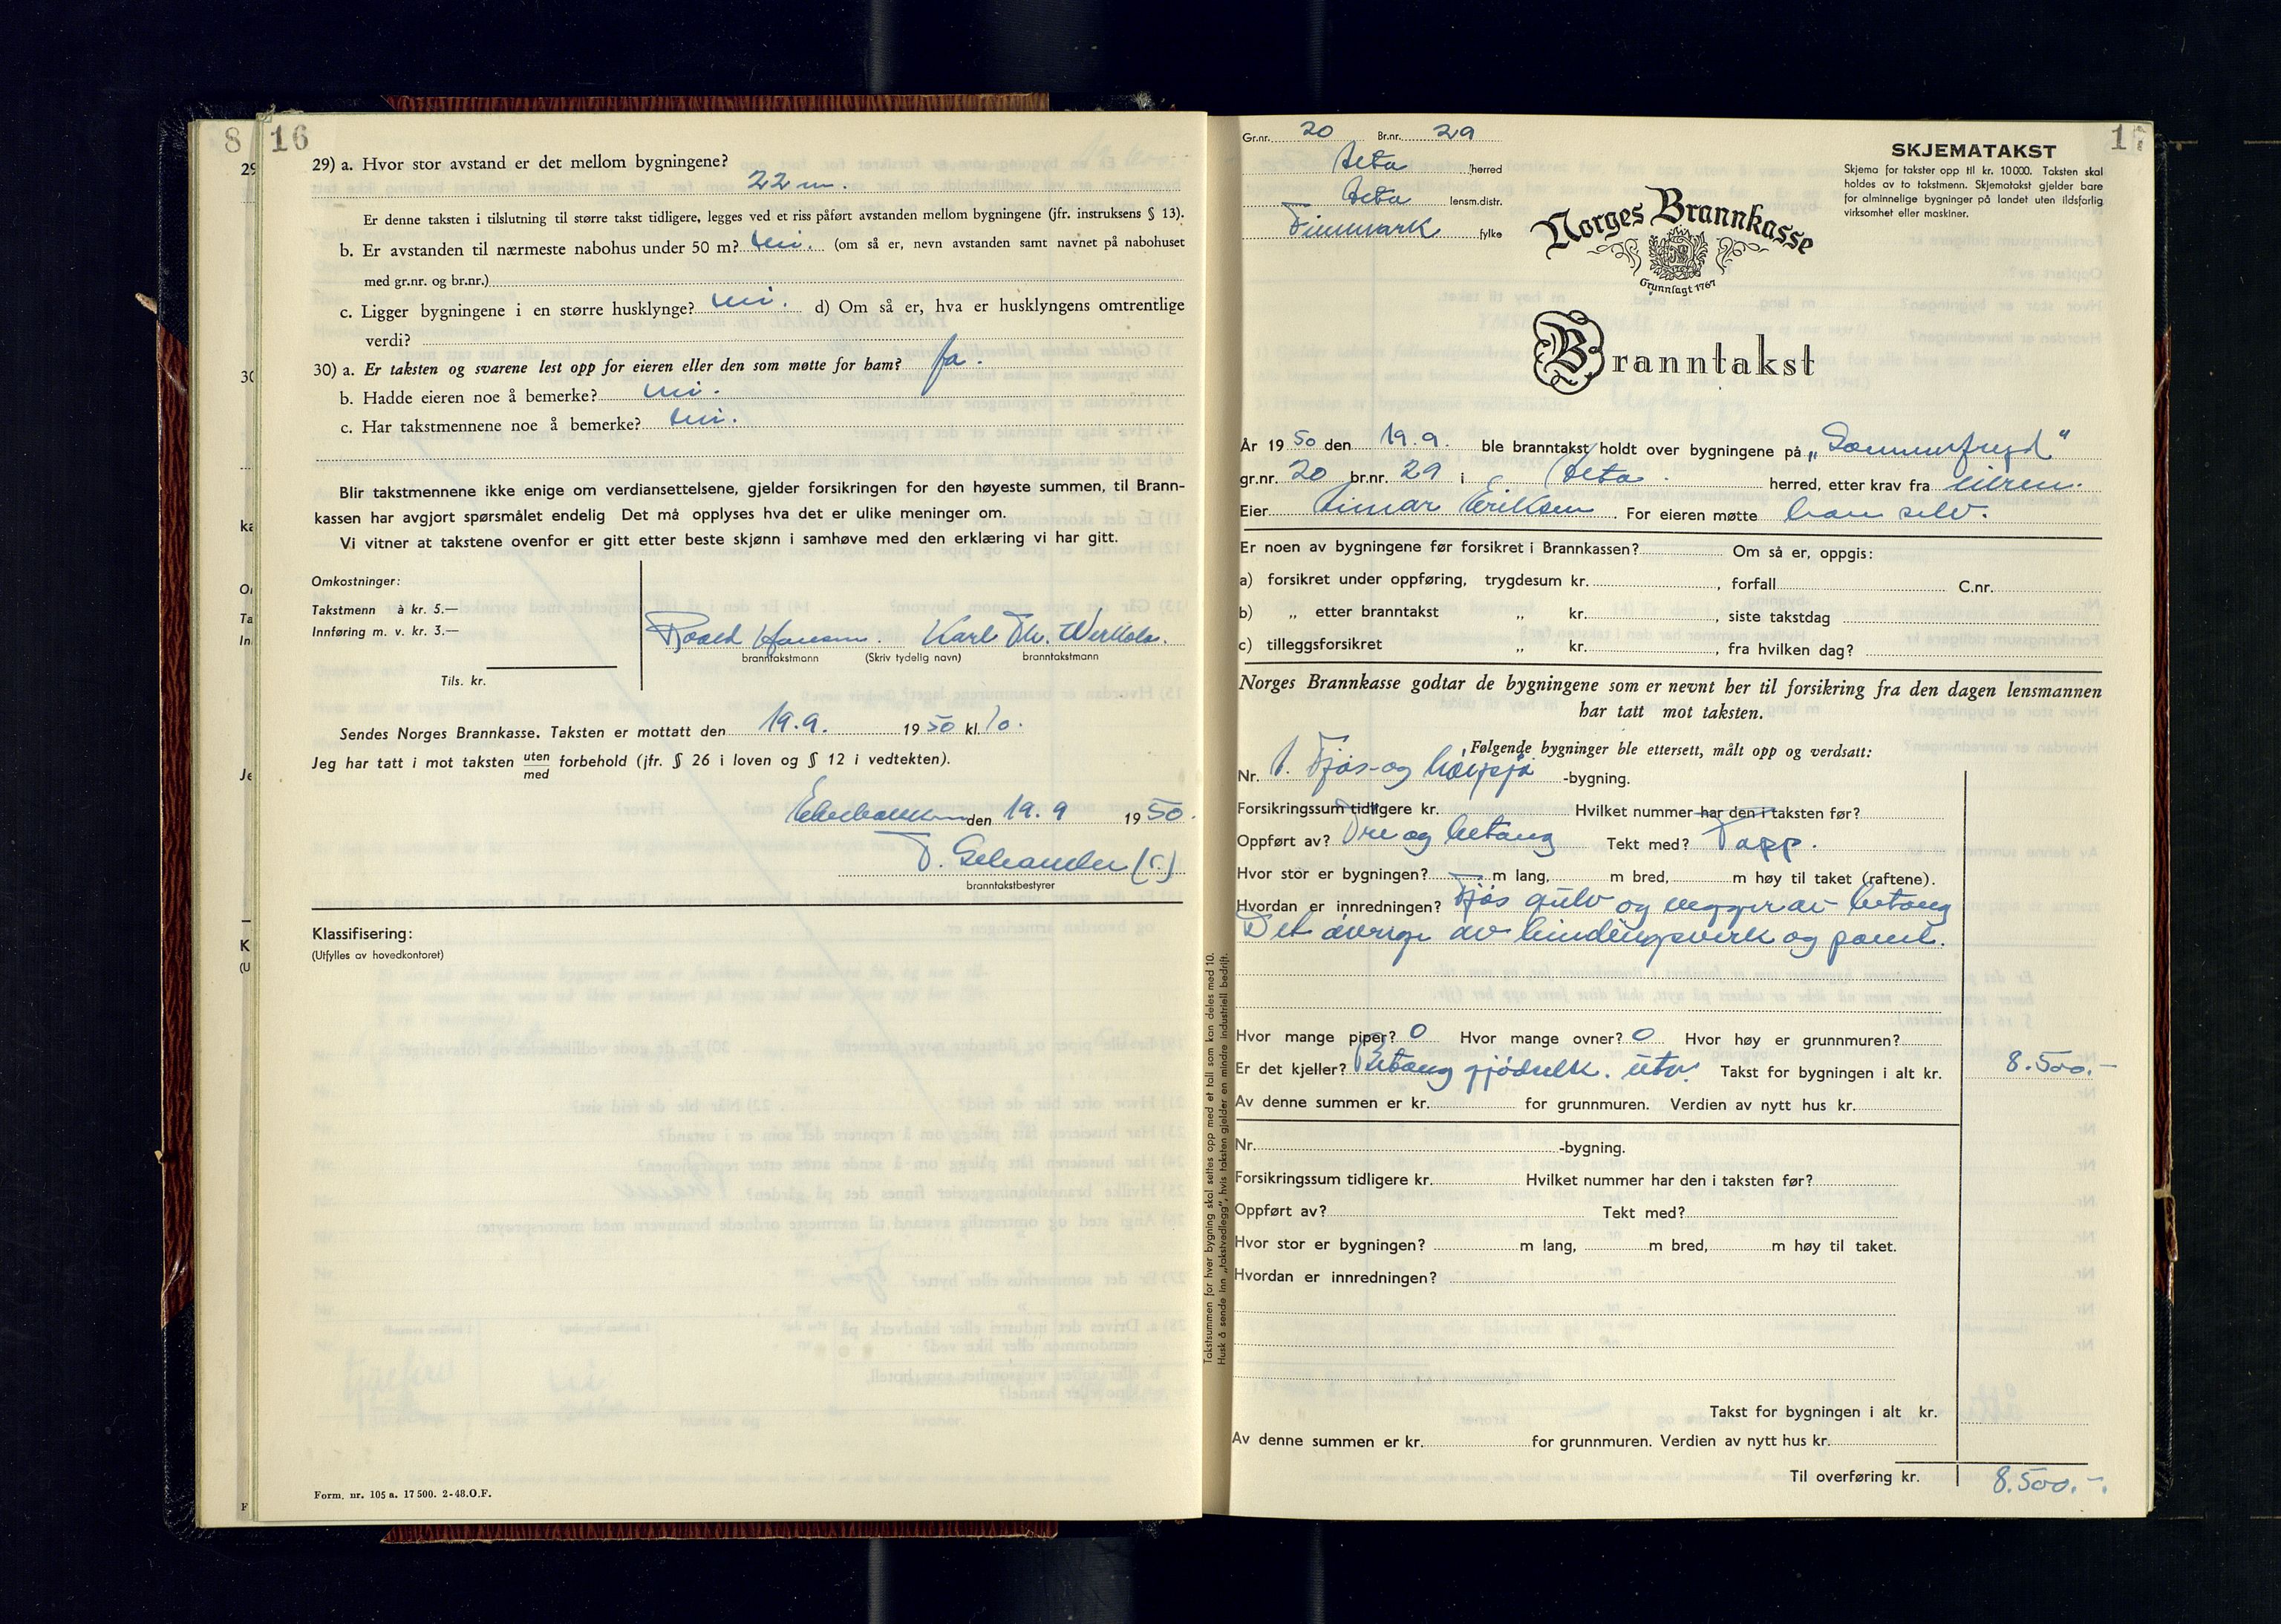 8
16
29) a. Hvor stor avstand er det mellom bygningene?
22 m.
Er denne taksten i tilslutning til større takst tidligere, legges ved et riss påført avstanden mellom bygningene (jfr. instruksens § 13).
b. Er avstanden til nærmeste nabohus under 50 m? nei. (om så er, nevn avstanden samt navnet på nabohuset
med gr.nr. og br.nr.)
c. Ligger bygningene i en større husklynge? nei. d) Om så er, hva er husklyngens omtrentlige
verdi?
30) a. Er taksten og svarene lest opp for eieren eller den som møtte for ham? Ja.
b. Hadde eieren noe å bemerke? nei.
c. Har takstmennene noe å bemerke? nei.
Blir takstmennene ikke enige om verdiansettelsene, gjelder forsikringen for den høyeste summen, til Brann-
kassen har avgjort spørsmålet endelig Det må opplyses hva det er ulike meninger om.
Vi vitner at takstene ovenfor er gitt etter beste skjønn i samhøve med den erklæring vi har gitt.
Omkostninger:
Takstmenn à kr. 5.—
Innføring m. v. kr. 3.—
Tils. kr.
Roald Hansen. Karl Th. Werkola.
branntakstmann (Skriv tydelig navn) branntakstmann
Sendes Norges Brannkasse. Taksten er mottatt den 19.9. 1950 kl. 10.
Jeg har tatt i mot taksten uten
med forbehold (jfr. § 26 i loven og § 12 i vedtekten).
den 19.9 1950.
branntakstbestyrer
Klassifisering:
(Utfylles av hovedkontoret)
Form. nr. 105 a. 17 500. 2-48.O.F.
17
Gr.nr. 20 Br.nr. 29
Alta herred
Alta lensm.distr.
Finnmark fylke
SKJEMATAKST
Skjema for takster opp til kr. 10000. Taksten skal
holdes av to takstmenn. Skjematakst gjelder bare
for alminnelige bygninger på landet uten ildsfarlig
virksomhet eller maskiner.
Norges Brannkasse
Grunnlagt 1767
Branntakst
År 1950 den 19.9. ble branntakst holdt over bygningene på „Sommerfryd"
gr.nr. 20 br.nr. 29 i Alta. herred, etter krav fra eieren.
Eier Einar Eriksen. For eieren møtte han selv.
Er noen av bygningene før forsikret i Brannkassen? Om så er, oppgis:
a) forsikret under oppføring, trygdesum kr. , forfall C.nr.
b) „ etter branntakst „ kr. , siste takstdag
c) tilleggsforsikret „ kr. , fra hvilken dag?
Norges Brannkasse godtar de bygningene som er nevnt her til forsikring fra den dagen lensmannen
har tatt mot taksten.
Følgende bygninger ble ettersett, målt opp og verdsatt:
Nr. 1. Fjøs- og høysjå -bygning.
Forsikringssum tidligere kr. Hvilket nummer har den i taksten før?
Oppført av? Tre og betong Tekt med? Papp.
Hvor stor er bygningen? m lang, m bred, m høy til taket (raftene).
Hvordan er innredningen? Fjøs gulv og vegger av betong
Det øvrige av bindingsverk og panel.
Hvor mange piper? 0 Hvor mange ovner? 0 Hvor høy er grunnmuren?
Er det kjeller? Betong gjødselk. utv. Takst for bygningen i alt kr. 8.500.-
Av denne summen er kr. for grunnmuren. Verdien av nytt hus kr.
Nr. -bygning.
Forsikringssum tidligere kr. Hvilket nummer har den i taksten før?
Oppført av? Tekt med?
Hvor stor er bygningen? m lang, m bred, m høy til taket.
Hvordan er innredningen?
Takst for bygningen i alt kr.
Av denne summen er kr. for grunnmuren. Verdien av nytt hus kr.
Til overføring kr. 8.500.-
Takstsummen for hver bygning skal settes opp med et tall som kan deles med 10.
Husk å sende inn „takstvedlegg", hvis taksten gjelder en mindre industriell bedrift.